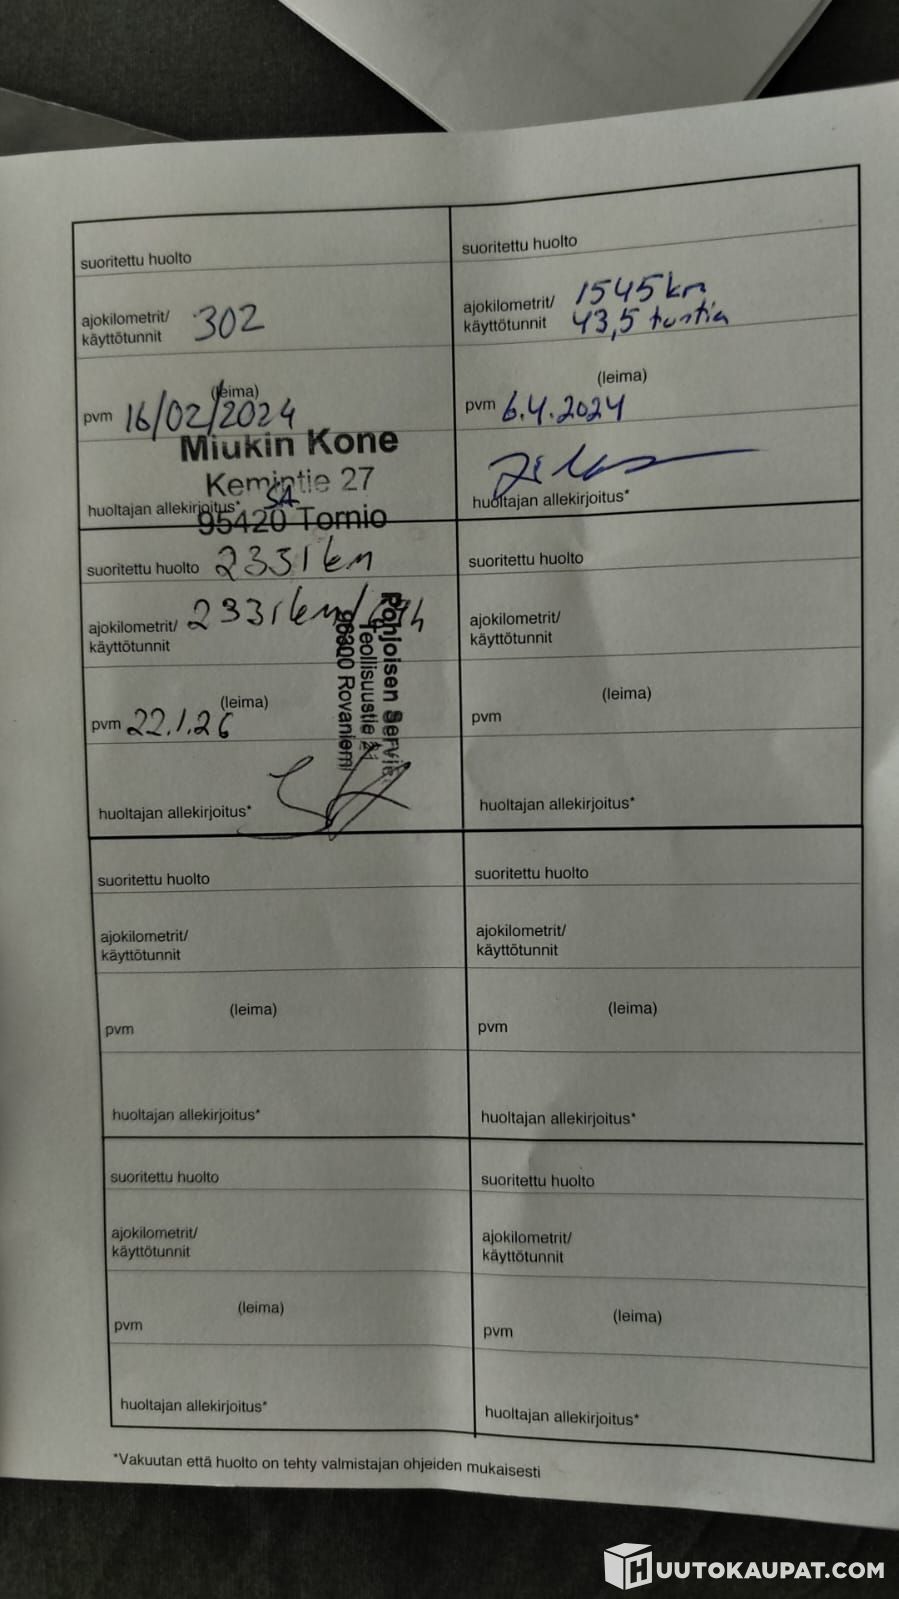 suoritettu huolto
ajokilometrit/
käyttötunnit 302
(leima)
pvm 16/02/2024
Miukin Kone
Kemintie 27
huoltajan allekirjoitus* SA
95420 Tornio
suoritettu huolto
ajokilometrit/ 1545 km
käyttötunnit 43,5 tuntia
(leima)
pvm 6.4.2024
huoltajan allekirjoitus*
suoritettu huolto 2331 km
ajokilometrit/ 2331 km/
käyttötunnit
(leima)
pvm 22.1.26
Pohjoisen
Teollisuustie
96300 Rovaniemi
huoltajan allekirjoitus*
suoritettu huolto
ajokilometrit/
käyttötunnit
(leima)
pvm
huoltajan allekirjoitus*
suoritettu huolto
ajokilometrit/
käyttötunnit
(leima)
pvm
huoltajan allekirjoitus*
suoritettu huolto
ajokilometrit/
käyttötunnit
(leima)
pvm
huoltajan allekirjoitus*
suoritettu huolto
ajokilometrit/
käyttötunnit
(leima)
pvm
huoltajan allekirjoitus*
suoritettu huolto
ajokilometrit/
käyttötunnit
(leima)
pvm
huoltajan allekirjoitus*
*Vakuutan että huolto on tehty valmistajan ohjeiden mukaisesti
HUUTOKAUPAT.COM